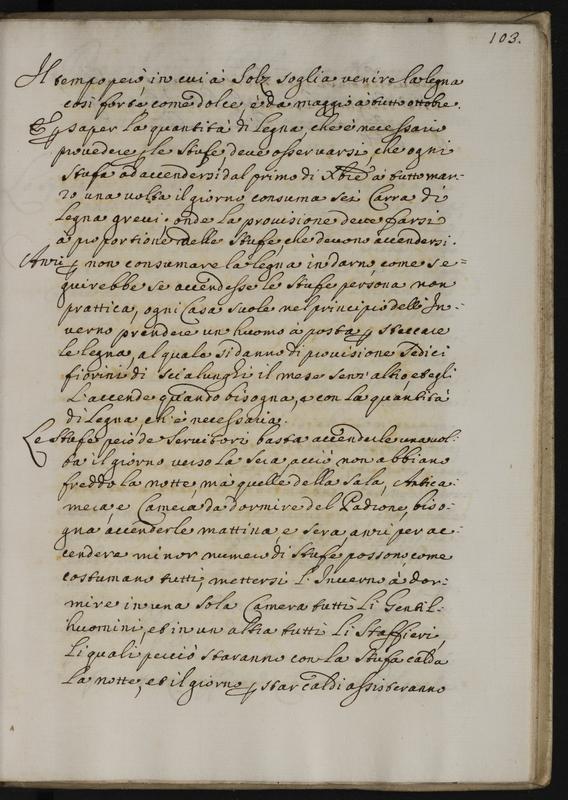 103.
Il tempo però in cui à Solz soglia venire la legna
così forte come dolce, è da maggio à tutto ottobre.
Et p saper la quantità di legna, che è necessario
provedere p le stufe deve osservarsi, che ogni
stufa ad accendersi dal primo di Xbre à tutto mar-
zo una volta il giorno consuma sei Carra di
legna grevi; onde la provisione deve farsi
à proportione delle stufe che devono accendersi.
Anzi p non consumare la legna indarno, come se=
guirebbe se accendesse le stufe persona non
prattica, ogni Casa suole nel principio dell' In=
verno prendere un huomo à posta p steccare
le legna, al quale si danno di provisione sedici
fiorini di scialunghi il mese senz' altro, et egli
l'accende quando bisogna, e con la quantità
di legna, ch' è necessaria.
Le stufe però de servitori basta accenderle una vol-
ta il giorno verso la sera acciò non abbiano
freddo la notte, mà quelle della sala, Antica-
mera, e Camera da dormire del Padrone, biso-
gna accenderle mattina, e sera, anzi per ac-
cendere minor numero di stufe possono, come
costumano tutti, mettersi l' Inverno à dor-
mire in una sola Camera tutti li Gentil-
huomini, et in un altra tutti li staffieri,
li quali perciò staranno con la stufa calda
la notte, et il giorno p star caldi assisteranno